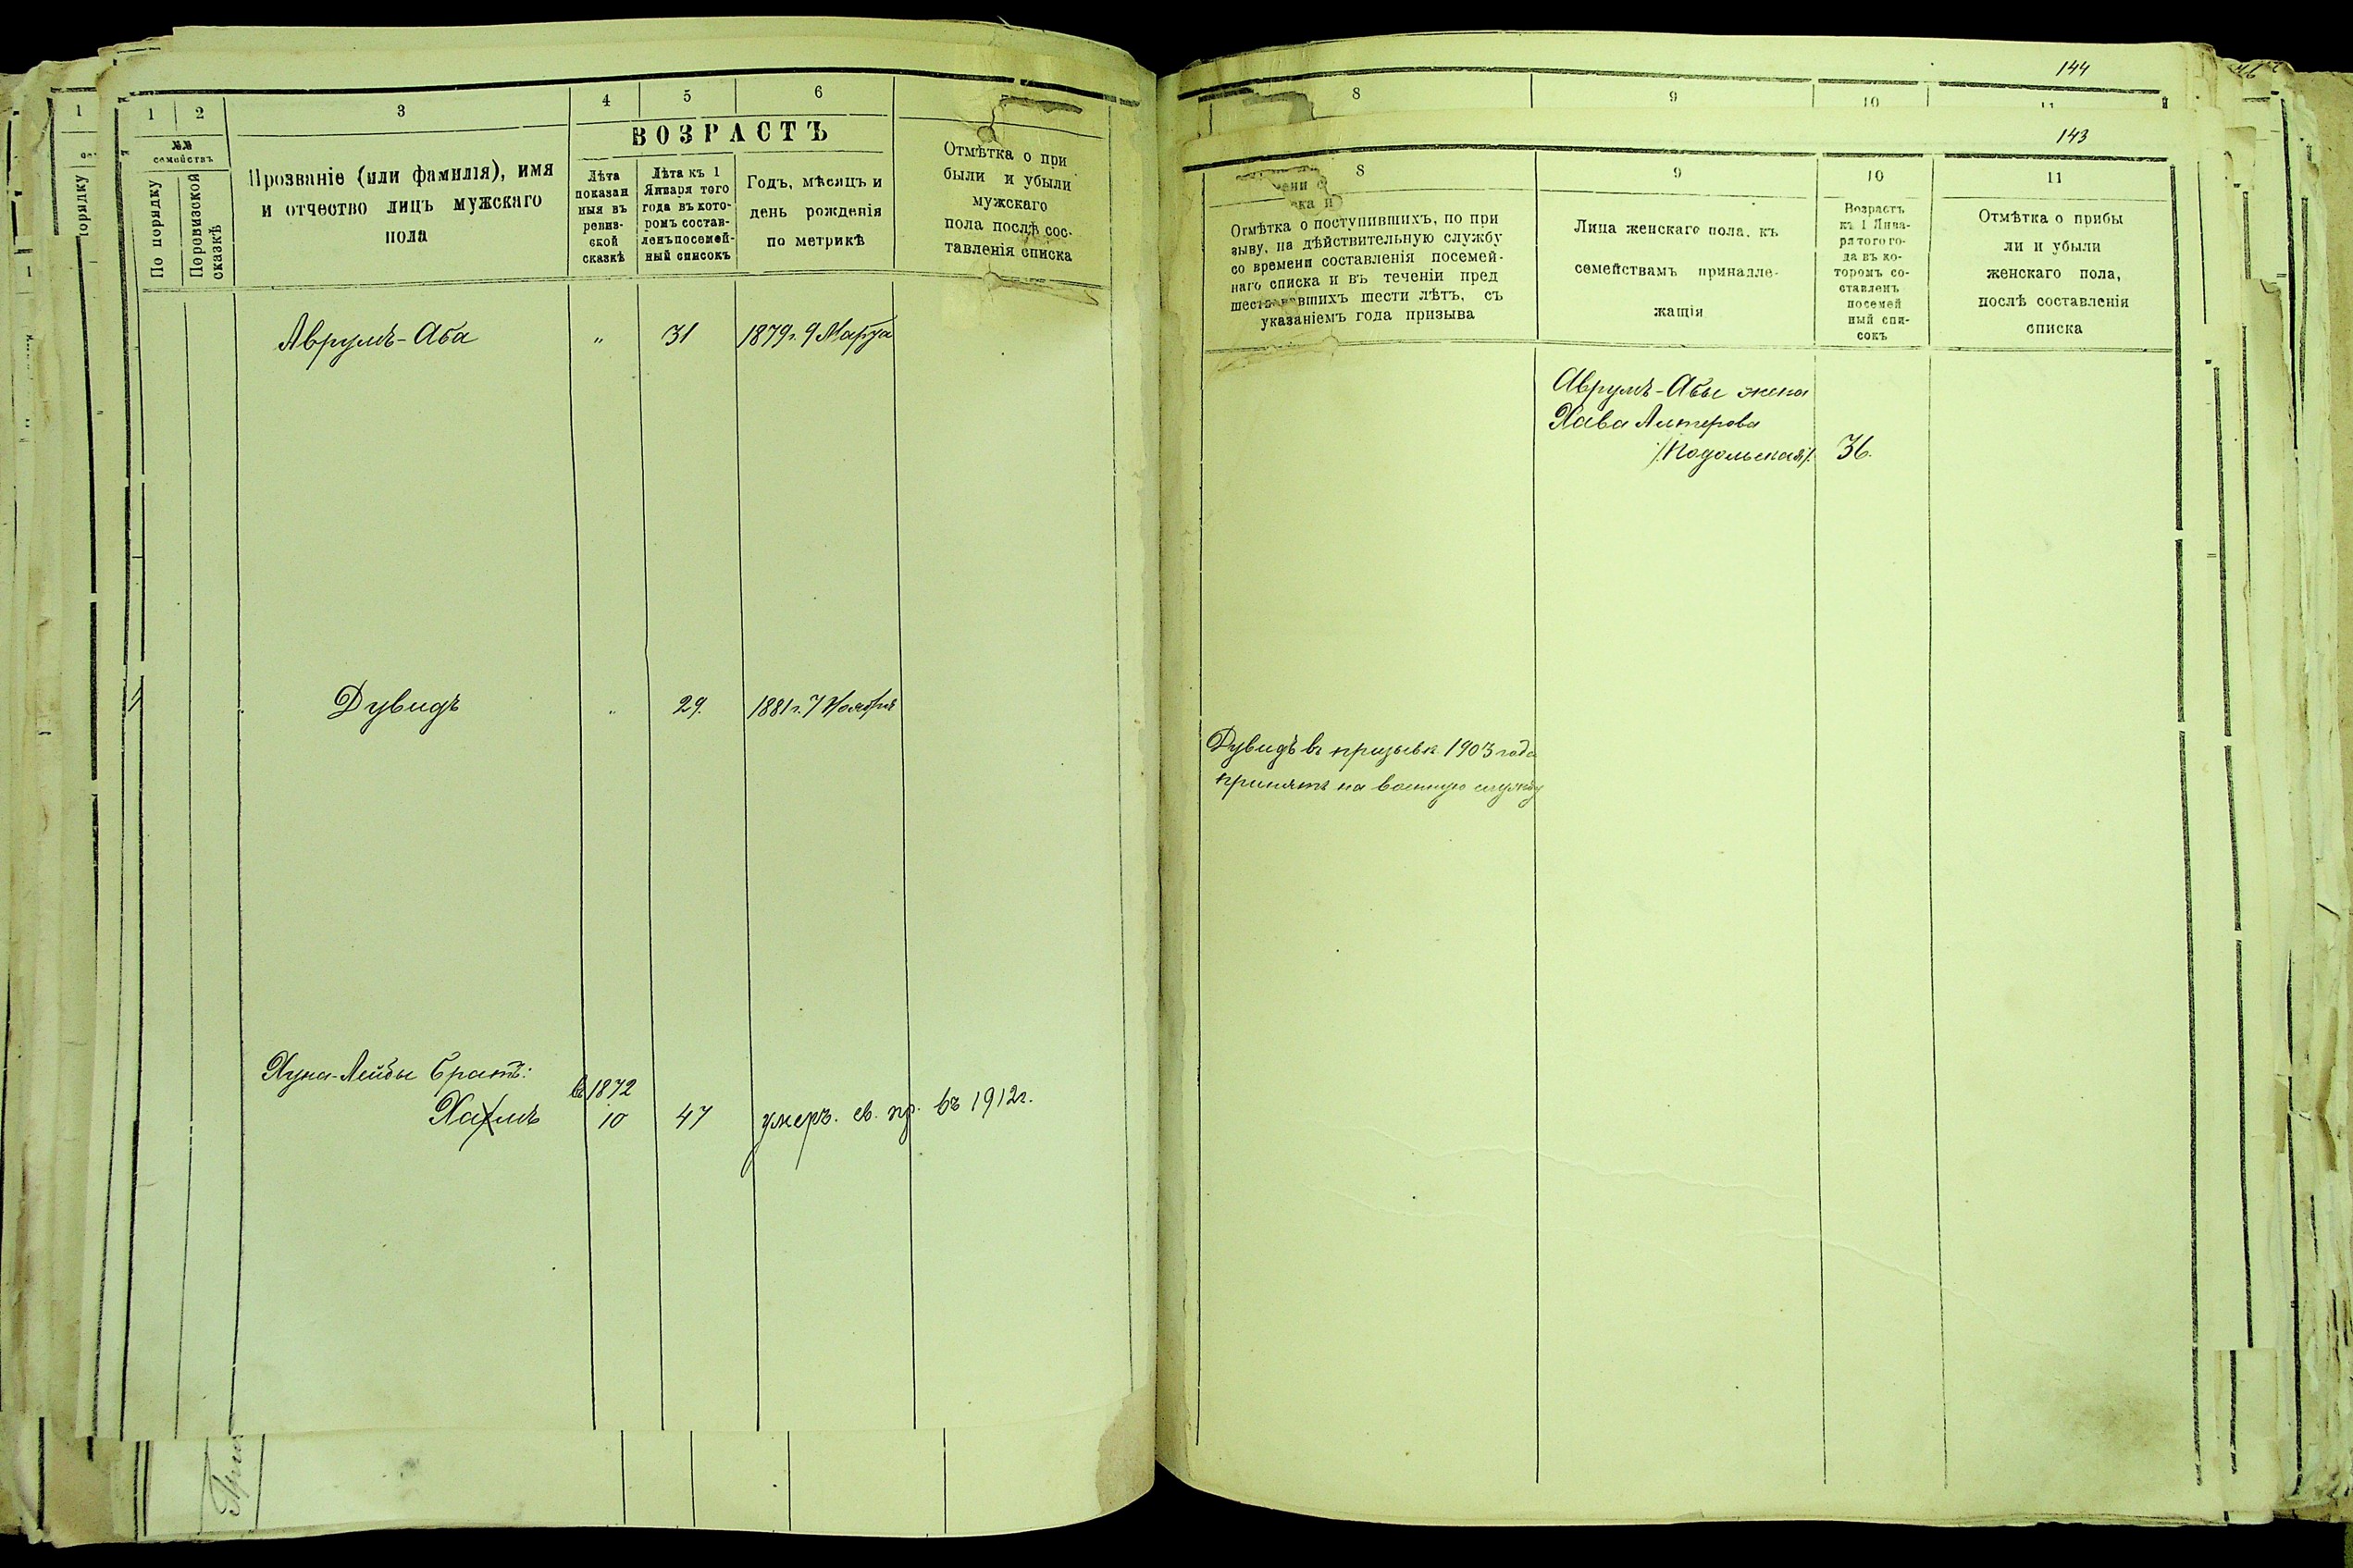 1
2
3
4
5
6
№№
семействъ
По порядку
Поревизской
сказкѣ
Прозваніе (или фамилія), имя
и отчество лицъ мужскаго
пола
ВОЗРАСТЪ
Лѣта
показан
ныя въ
ревиз-
ской
сказкѣ
Лѣта къ 1
Января того
года въ кото-
ромъ состав-
ленъ посемей-
ный списокъ
Годъ, мѣсяцъ и
день рожденія
по метрикѣ
Отмѣтка о при
были и убыли
мужскаго
пола послѣ сос-
тавленія списка
Аврумъ-Аба „ 31 1879 г. 9 Марта
Дувидъ „ 29. 1881 г. 7 Ноября
Хуна-Лейбы братъ:
въ 1872
Хаимъ 10 47 умеръ. св. пр. въ 1912 г.
144
8
9
10
11
143
8
9
10
11
Отмѣтка о поступившихъ, по при
зыву, на дѣйствительную службу
со времени составленія посемей-
наго списка и въ теченіи пред
шествовавшихъ шести лѣтъ, съ
указаніемъ года призыва
Лица женскаго пола, къ
семействамъ принадле-
жащія
Возрастъ
къ 1 Янва-
ря того го-
да въ ко-
торомъ со-
ставленъ
посемей
ный спи-
сокъ
Отмѣтка о прибы
ли и убыли
женскаго пола,
послѣ составленія
списка
Аврумъ-Абы жена
Хава Алтерова
/Подольская/. 36.
Дувидъ въ призывѣ 1903 года
принятъ на военную службу